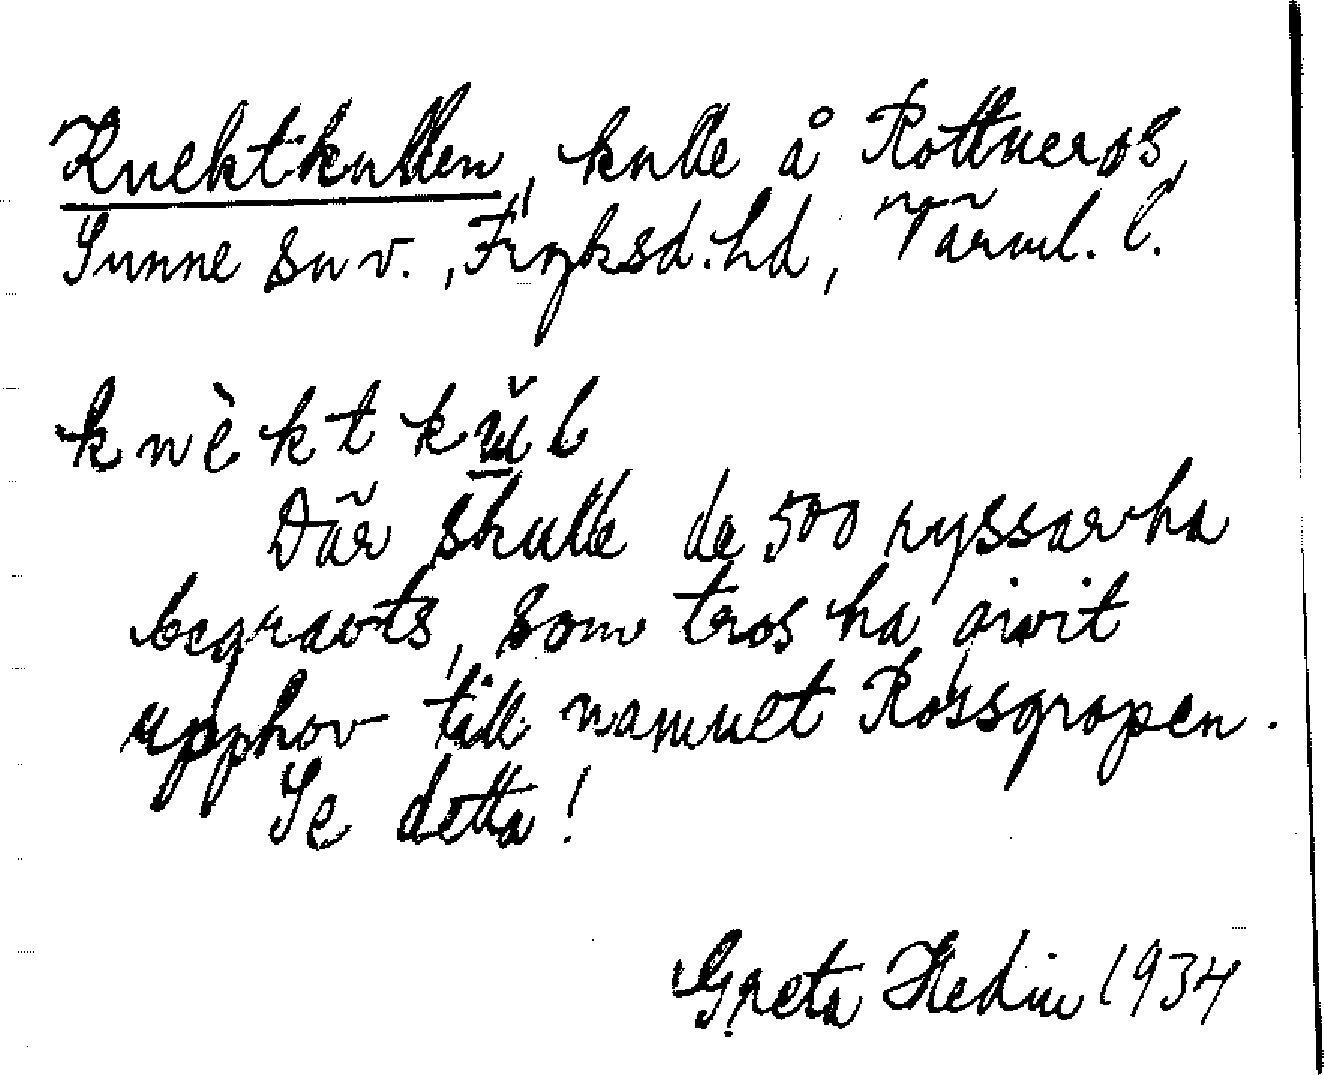 Knektkullen, kulle å Rottneros,
Sunne snv., Fryksd. hd, Värml. l.
knèktkul
Där skulle de 500 ryssar ha
begravts, som tros ha givit
upphov till namnet Rossgropen.
Se detta!
Greta Hedin 1934